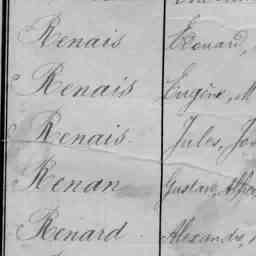 Renais Edouard,
Renais Eugène, M
Renais Jules, Jos
Renan Gustave, Alpho
Renard Alexandre,